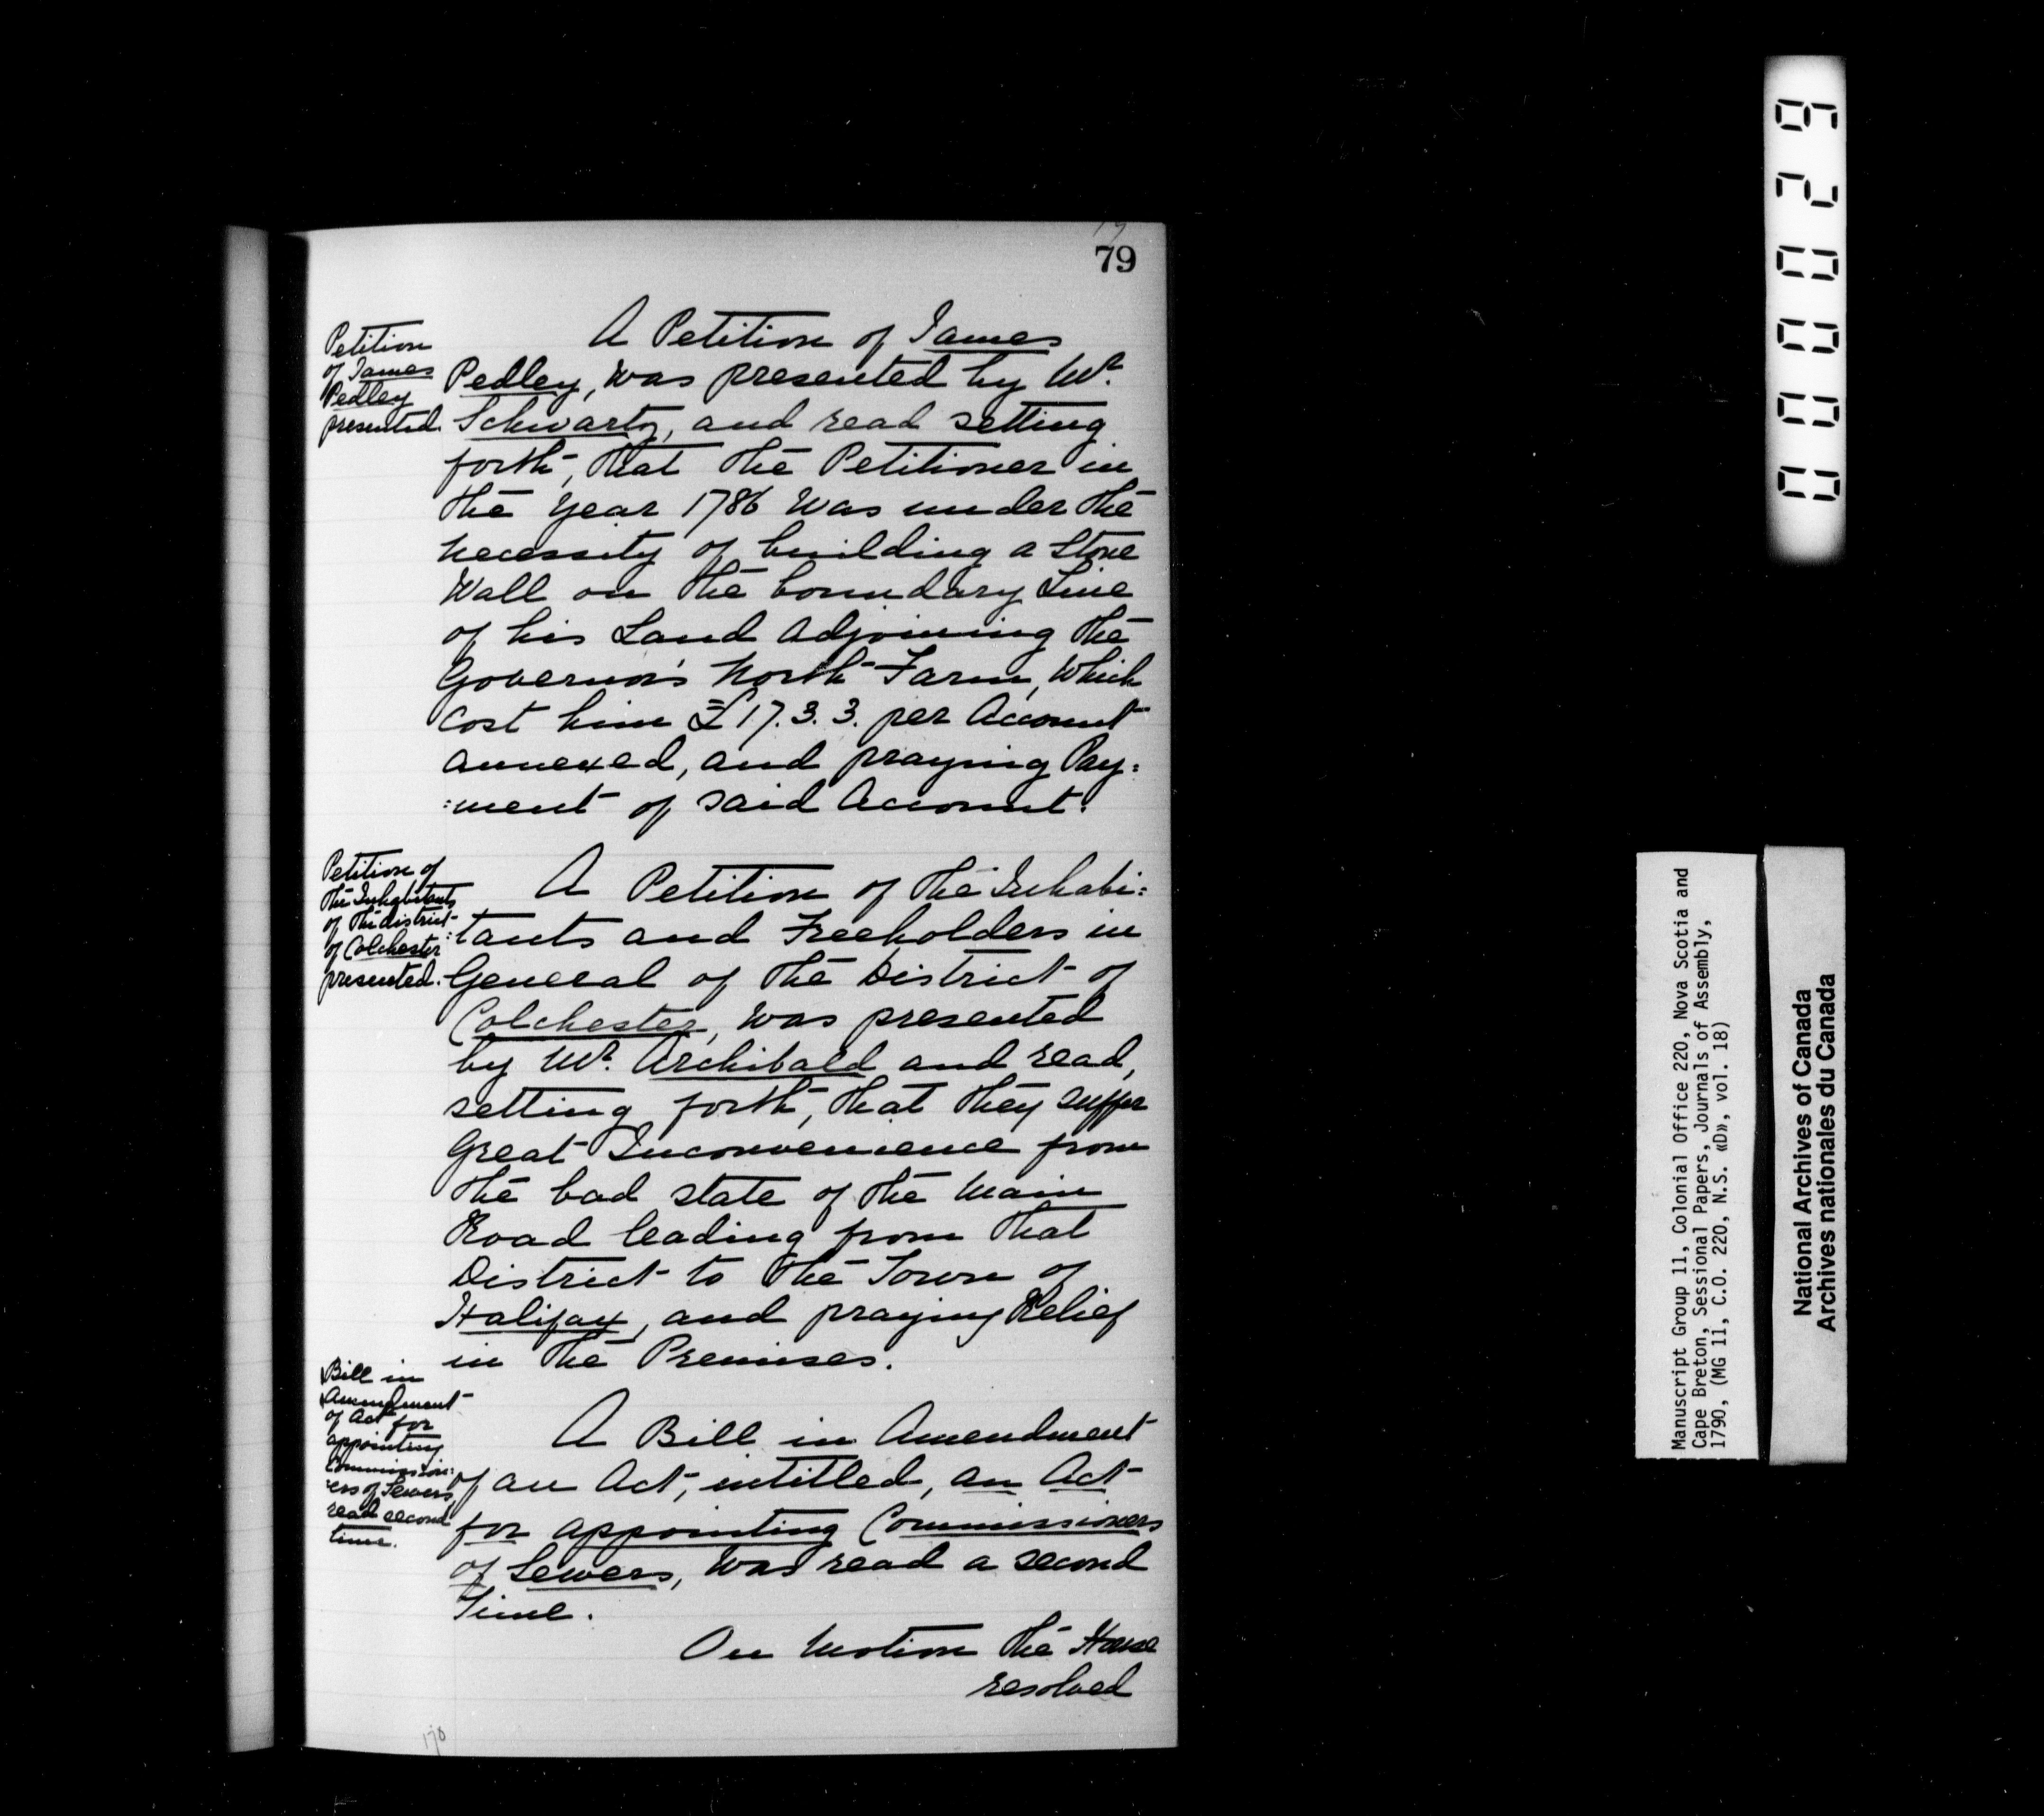 79
Petition
of James
Pedley
presented.
A Petition of James
Pedley, was presented by Mr.
Schwartz, and read setting
forth, that the Petitioner in
the Year 1786 was under the
necessity of building a Stone
Wall on the boundary Line
of his Land adjoining the
Governor's North Farm, which
cost him £17.3.3. per Account
annexed, and praying Pay:
:ment of said Account.
Petition of
the Inhabitants
of the district
of Colchester
presented.
A Petition of the Inhabi:
:tants and Freeholders in
General of the District of
Colchester, was presented
by Mr. Archibald and read,
setting forth, that they suffer
Great Inconvenience from
the bad state of the Main
Road leading from that
District to the Town of
Halifax, and praying Relief
in the Premises.
Bill in
Amendment
of Act for
appointing
Commission:
:ers of Sewers
read second
time.
A Bill in Amendment
of an Act, intitled, an Act
for appointing Commissioners
of Sewers, was read a second
Time.
On Motion the House
resolved
170
000029
Manuscript Group 11, Colonial Office 220, Nova Scotia and
Cape Breton, Sessional Papers, Journals of Assembly,
1790, (MG 11, C.O. 220, N.S. «D», vol. 18)
National Archives of Canada
Archives nationales du Canada